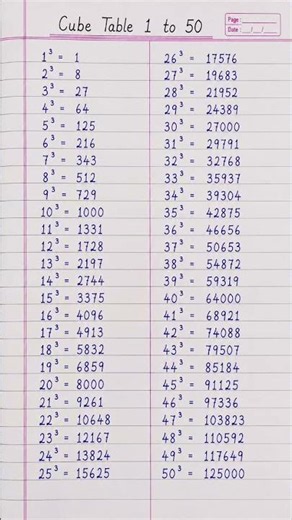 Cube Table 1 to 50
Page :
Date : __/__/__
1³ = 1
2³ = 8
3³ = 27
4³ = 64
5³ = 125
6³ = 216
7³ = 343
8³ = 512
9³ = 729
10³ = 1000
11³ = 1331
12³ = 1728
13³ = 2197
14³ = 2744
15³ = 3375
16³ = 4096
17³ = 4913
18³ = 5832
19³ = 6859
20³ = 8000
21³ = 9261
22³ = 10648
23³ = 12167
24³ = 13824
25³ = 15625
26³ = 17576
27³ = 19683
28³ = 21952
29³ = 24389
30³ = 27000
31³ = 29791
32³ = 32768
33³ = 35937
34³ = 39304
35³ = 42875
36³ = 46656
37³ = 50653
38³ = 54872
39³ = 59319
40³ = 64000
41³ = 68921
42³ = 74088
43³ = 79507
44³ = 85184
45³ = 91125
46³ = 97336
47³ = 103823
48³ = 110592
49³ = 117649
50³ = 125000